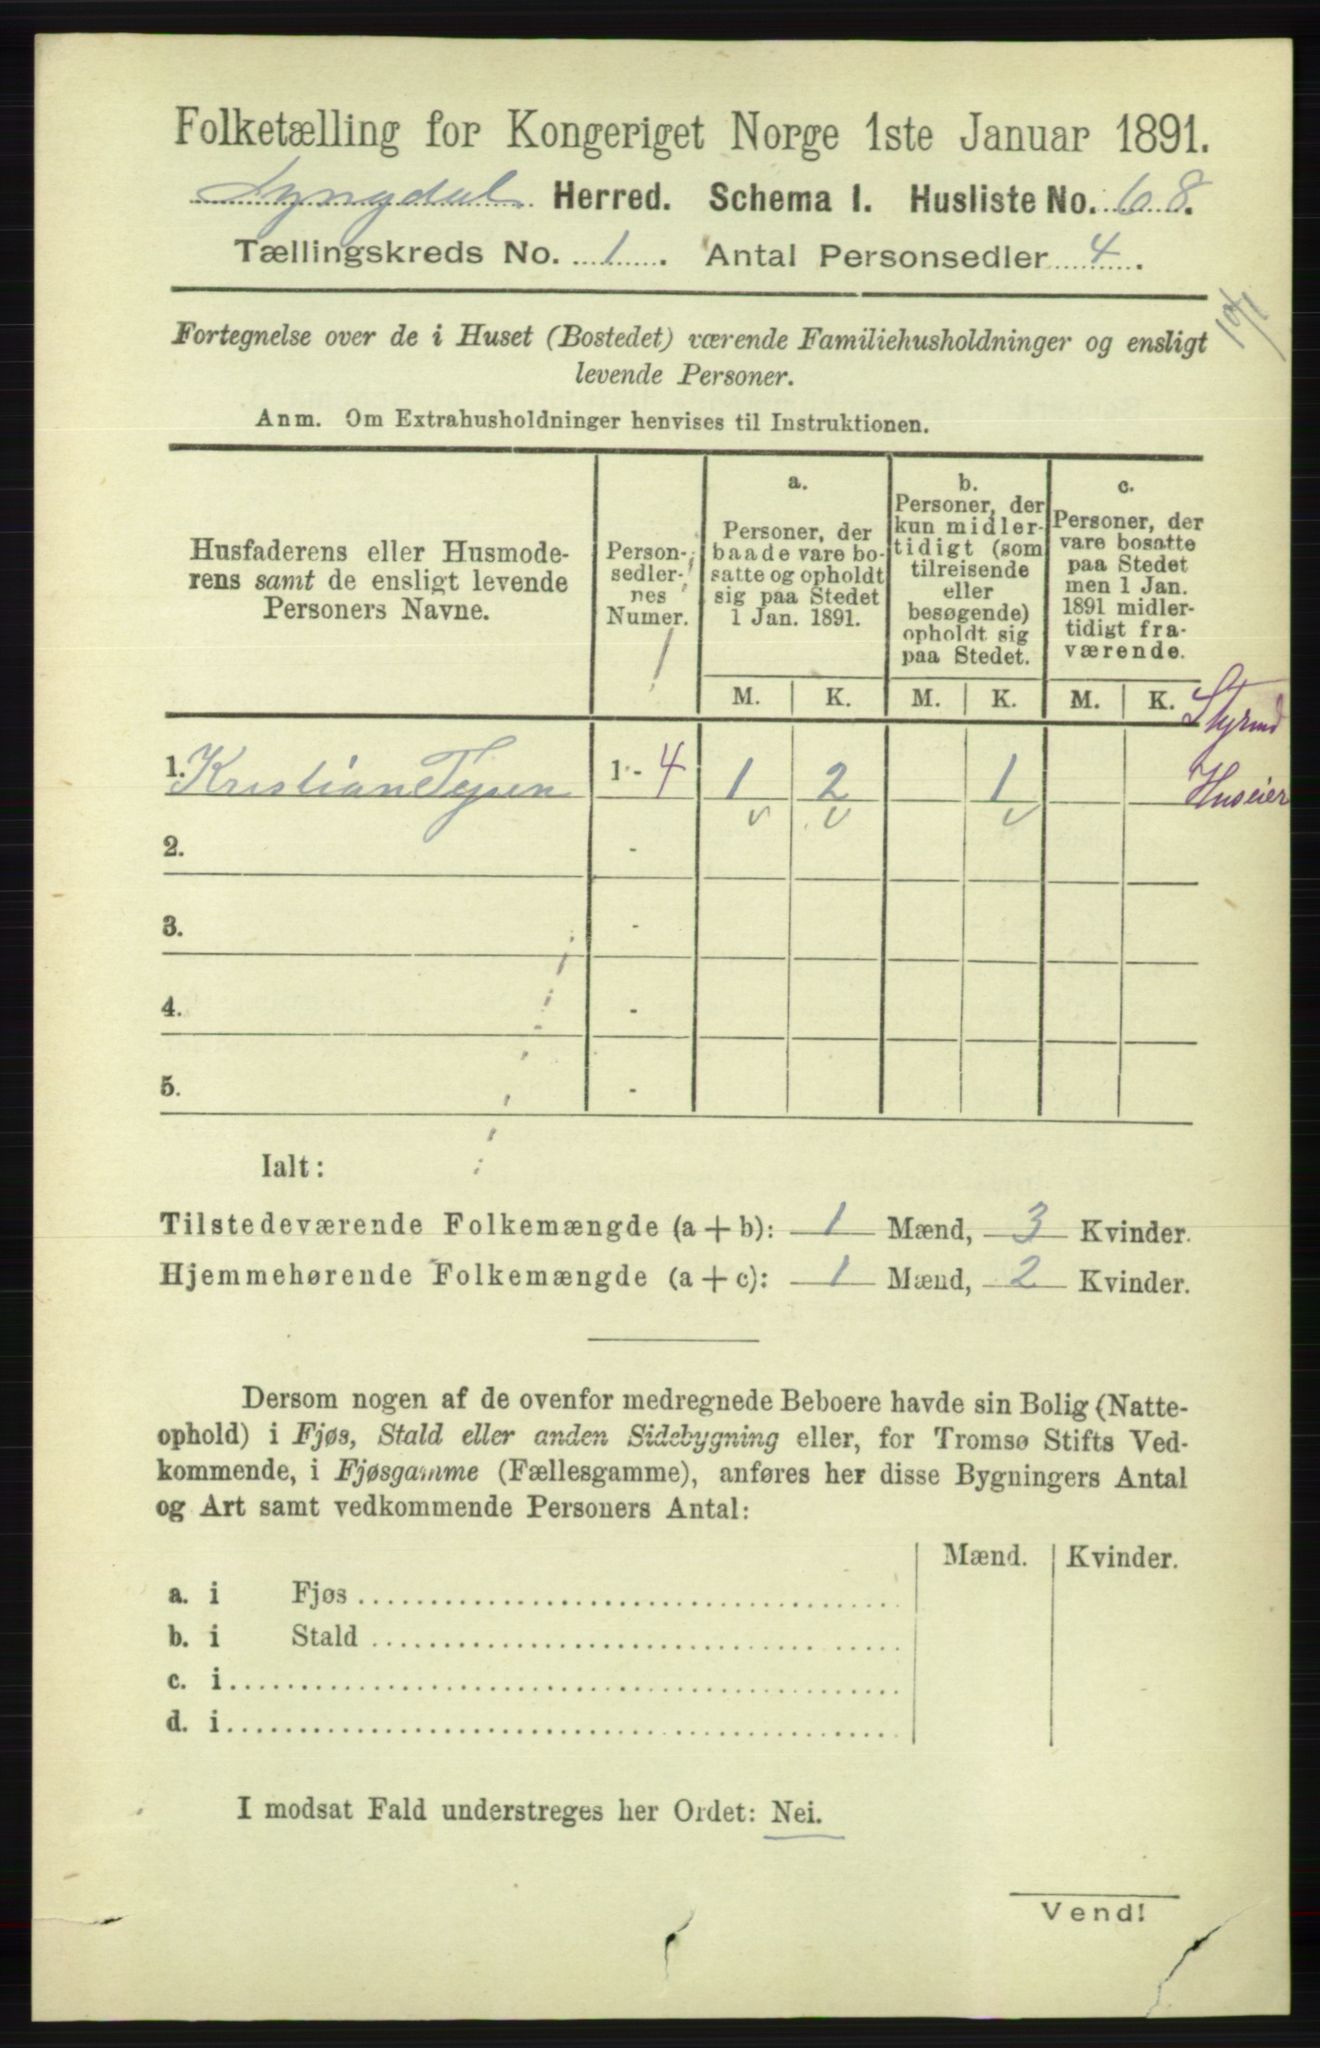 Folketælling for Kongeriget Norge 1ste Januar 1891.
Lyngdal Herred. Schema I. Husliste No. 68.
Tællingskreds No. 1. Antal Personsedler 4.
Fortegnelse over de i Huset (Bostedet) værende Familiehusholdninger og ensligt
levende Personer.
Anm. Om Extrahusholdninger henvises til Instruktionen.
Husfaderens eller Husmode-
rens samt de ensligt levende
Personers Navne.
Person-
sedler-
nes
Numer.
a.
Personer, der
baade vare bo-
satte og opholdt
sig paa Stedet
1 Jan. 1891.
b.
Personer, der
kun midler-
tidigt (som
tilreisende
eller
besøgende)
opholdt sig
paa Stedet.
c.
Personer, der
vare bosatte
paa Stedet
men 1 Jan.
1891 midler-
tidigt fra-
værende.
M. K. M. K. M. K.
Styrmd
1. Kristian 1 - 4 1 2 1 Huseier
2. -
3. -
4. -
5. -
Ialt:
Tilstedeværende Folkemængde (a + b): 1 Mænd, 3 Kvinder.
Hjemmehørende Folkemængde (a + c): 1 Mænd, 2 Kvinder.
Dersom nogen af de ovenfor medregnede Beboere havde sin Bolig (Natte-
ophold) i Fjøs, Stald eller anden Sidebygning eller, for Tromsø Stifts Ved-
kommende, i Fjøsgamme (Fællesgamme), anføres her disse Bygningers Antal
og Art samt vedkommende Personers Antal:
Mænd. Kvinder.
a. i Fjøs
b. i Stald
c. i
d. i
I modsat Fald understreges her Ordet: Nei.
Vend!